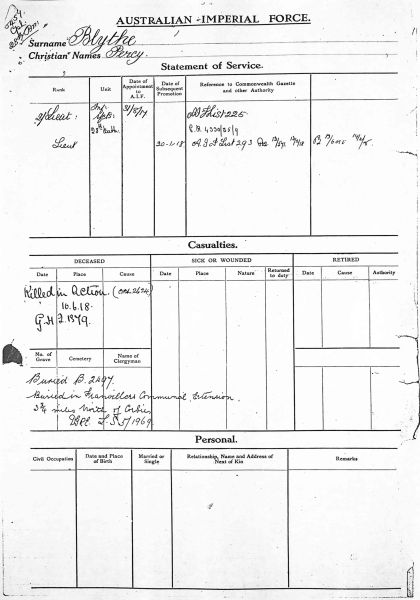 AUSTRALIAN IMPERIAL FORCE.
Surname Blythe
Christian Names Percy
Statement of Service.
Rank
Unit
Date of Appointment to A.I.F.
Date of Subsequent Promotion
Reference to Commonwealth Gazette and other Authority
2/Lieut:
Lieut
20-1-18
Casualties.
DECEASED
SICK OR WOUNDED
RETIRED
Date
Place
Cause
Date
Place
Nature
Returned to duty
Date
Cause
Authority
Killed in Action.
10.6.18.
No. of Grave
Cemetery
Name of Clergyman
Buried B. 2497.
Buried in Communal Extension
miles North of Corbie
Personal.
Civil Occupation
Date and Place of Birth
Married or Single
Relationship, Name and Address of Next of Kin
Remarks